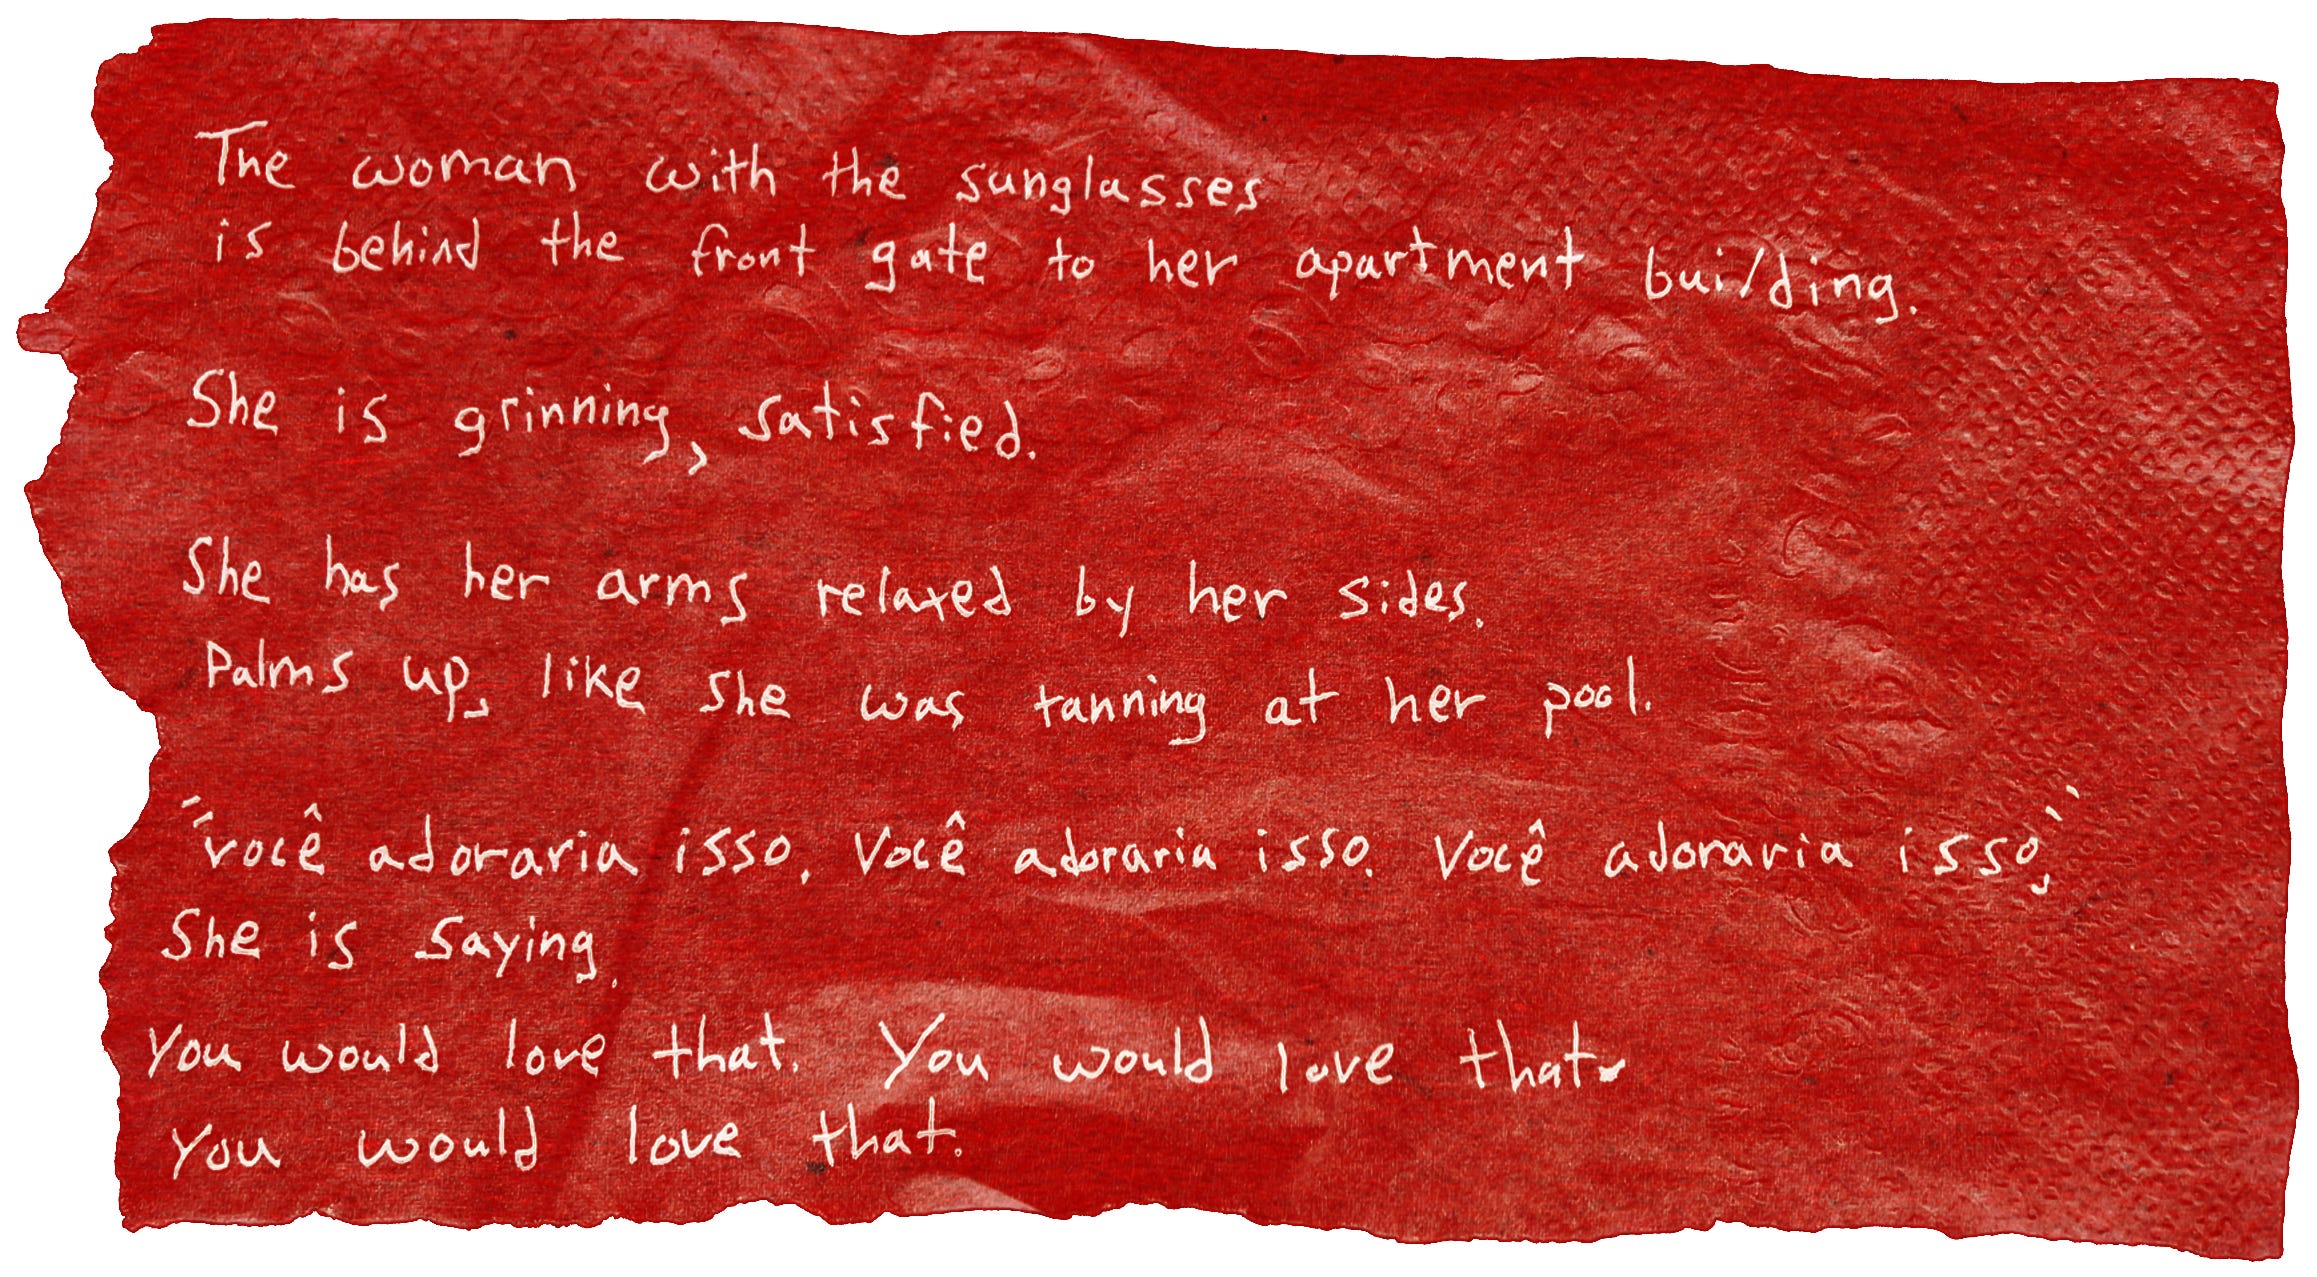 The woman with the sunglasses
is behind the front gate to her apartment building.
She is grinning, satisfied.
She has her arms relaxed by her sides.
Palms up, like she was tanning at her pool.
"você adoraria isso. Você adoraria isso. Você adoraria isso,"
She is saying.
You would love that. You would love that.
You would love that.